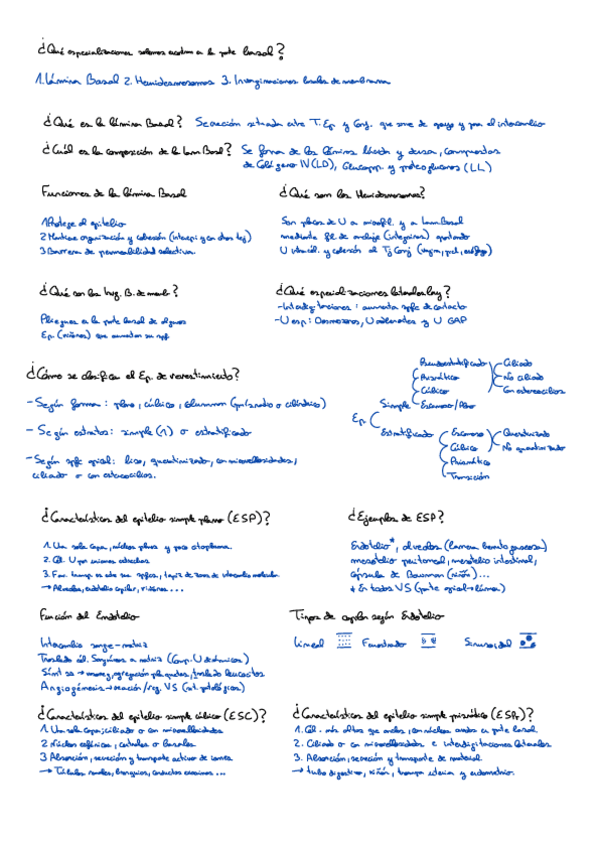 ¿Qué especializaciones solemos encontrar en la parte basal?
1. Lámina Basal 2. Hemidesmosomas 3. Invaginaciones basales de membrana
¿Qué es la lámina Basal? Secreción situada entre T. Ep. y Conj. que sirve de apoyo y para el intercambio
¿Cuál es la composición de la Lam Basal? Se forma de las láminas lúcida y densa, compuestas
de Colágeno IV (LD), Glucoprp. y proteoglucanos (LL)
Funciones de la lámina Basal
1 Protege al epitelio
2 Mantiene organización y cohesión (interepi y con otros tej)
3 Barrera de permeabilidad selectiva.
¿Qué son los Hemidesmosomas?
Son placas de U a microfil. y a Lam Basal
mediante fil. de anclaje (integrinas) aportando
U intracél. y cohesión al Tj Conj
¿Qué son las Invg. B. de memb.?
Pliegues en la parte basal de algunos
Ep. (riñones) que aumentan su spf.
¿Qué especializaciones laterales hay?
-Interdigitaciones: aumenta spfc de contacto
-U esp: Desmosomas, U adherentes y U GAP
¿Cómo se clasifica el Ep. de revestimiento?
- Según forma: plano, cúbico, columnar (prismático o cilíndrico)
- Según estratos: simple (1) o estratificado
- Según spfc apical: liso, queratinizado, con microvellosidades,
ciliado o con estereocilios.
Ep.
Simple
Pseudoestratificado
Prismático
Cúbico
Escamoso/Plano
Ciliado
No ciliado
Con estereocilios
Estratificado
Escamoso
Cúbico
Prismático
Transición
Queratinizado
No queratinizado
¿Características del epitelio simple plano (ESP)?
1. Una sola capa, núcleos planos y poco citoplasma.
2. Cél. U por uniones estrechas
3. Fan. transp. en spfcs, tapiz de zonas de intercambio molecular
→ Alveolos, endotelio capilar, riñones ...
¿Ejemplos de ESP?
Endotelio*, alveolos (barrera hematogaseosa)
mesotelio peritoneal, mesotelio intestinal,
cápsula de Bowman (riñón)...
* En todos VS (parte apical → lámina)
Función del Endotelio
Intercambio sangre-matriz
Traslado cél. Sanguíneas a matriz
Síntesis → agregación plaquetas, traslado leucocitos
Angiogénesis → creación/reg. VS (est. patológicos)
Tipos de capilar según Endotelio
Lineal Fenestrado Sinusoidal
¿Características del epitelio simple cúbico (ESC)?
1. Una sola capa; ciliado o con microvellosidades
2. Núcleos esféricos, centrales o basales
3 Absorción, secreción y transporte activo de iones
→ Túbulos renales, bronquios, conductos excretores ...
¿Características del epitelio simple prismático (ESPr)?
1. Cél. más altas que anchas, con núcleos ovalados en parte basal
2. Ciliado o con microvellosidades e interdigitaciones laterales
3. Absorción, secreción y transporte de material
→ tubo digestivo, riñón, trompa uterina y endometrio.